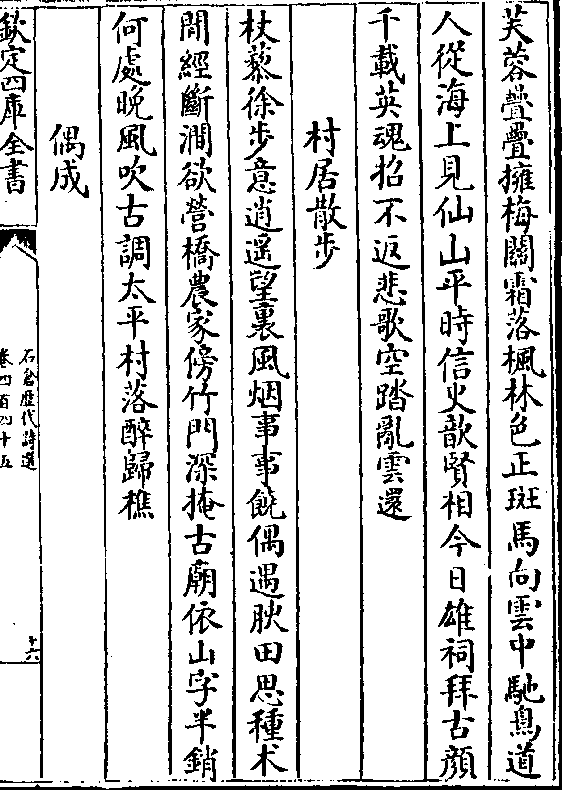 芙蓉疊疊擁梅關霜落楓林色正斑馬向雲中馳鳥道
人從海上見仙山平時信史歆賢相今日雄祠拜古顔
千載英魂招不返悲歌空踏亂雲還
村居散步
杖藜徐步意逍遥望裏風烟事事饒偶遇腴田思種术
閒經斷澗欲營橋農家傍竹門深掩古廟依山字半銷
何處晚風吹古調太平村落醉歸樵
偶成
欽定四庫全書
石倉歷代詩選
卷四百四十五
十六